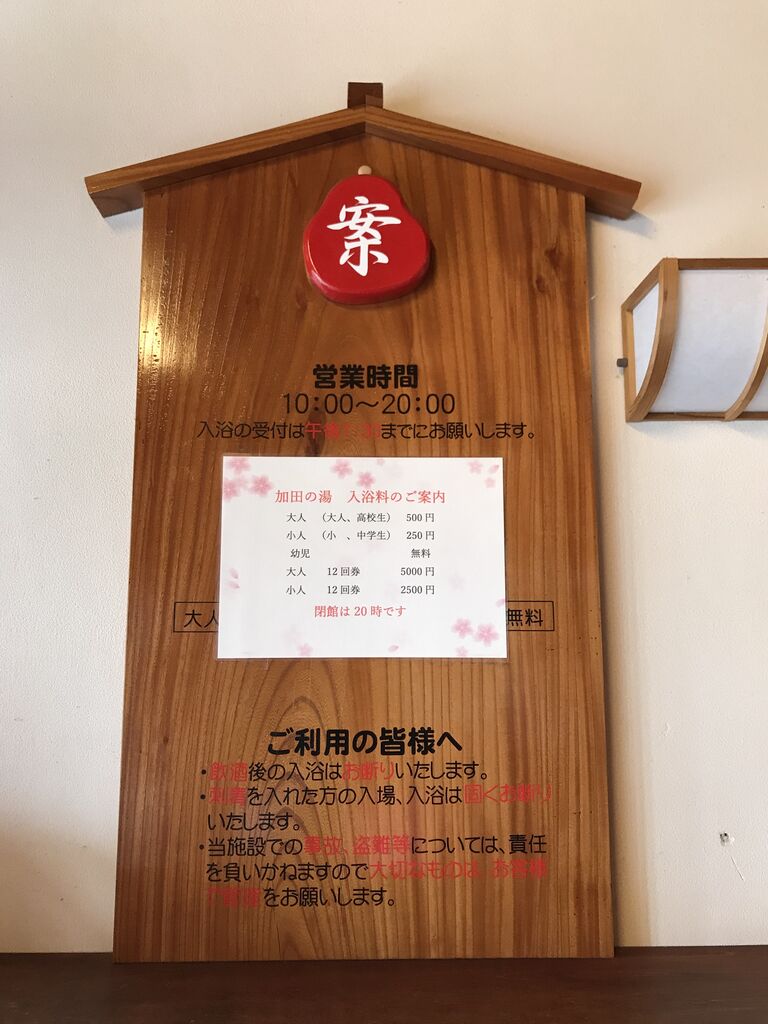 案
営業時間
10:00～20:00
入浴の受付は午後7:30までにお願いします。
加田の湯 入浴料のご案内
大人 （大人、高校生） 500円
小人 （小 、中学生） 250円
幼児 無料
大人 12回券 5000円
小人 12回券 2500円
閉館は20時です
大人 無料
ご利用の皆様へ
・飲酒後の入浴はお断りいたします。
・刺青を入れた方の入場、入浴は固くお断り
いたします。
・当施設での事故、盗難等については、責任
を負いかねますので大切なものは お客様
で管理をお願いします。